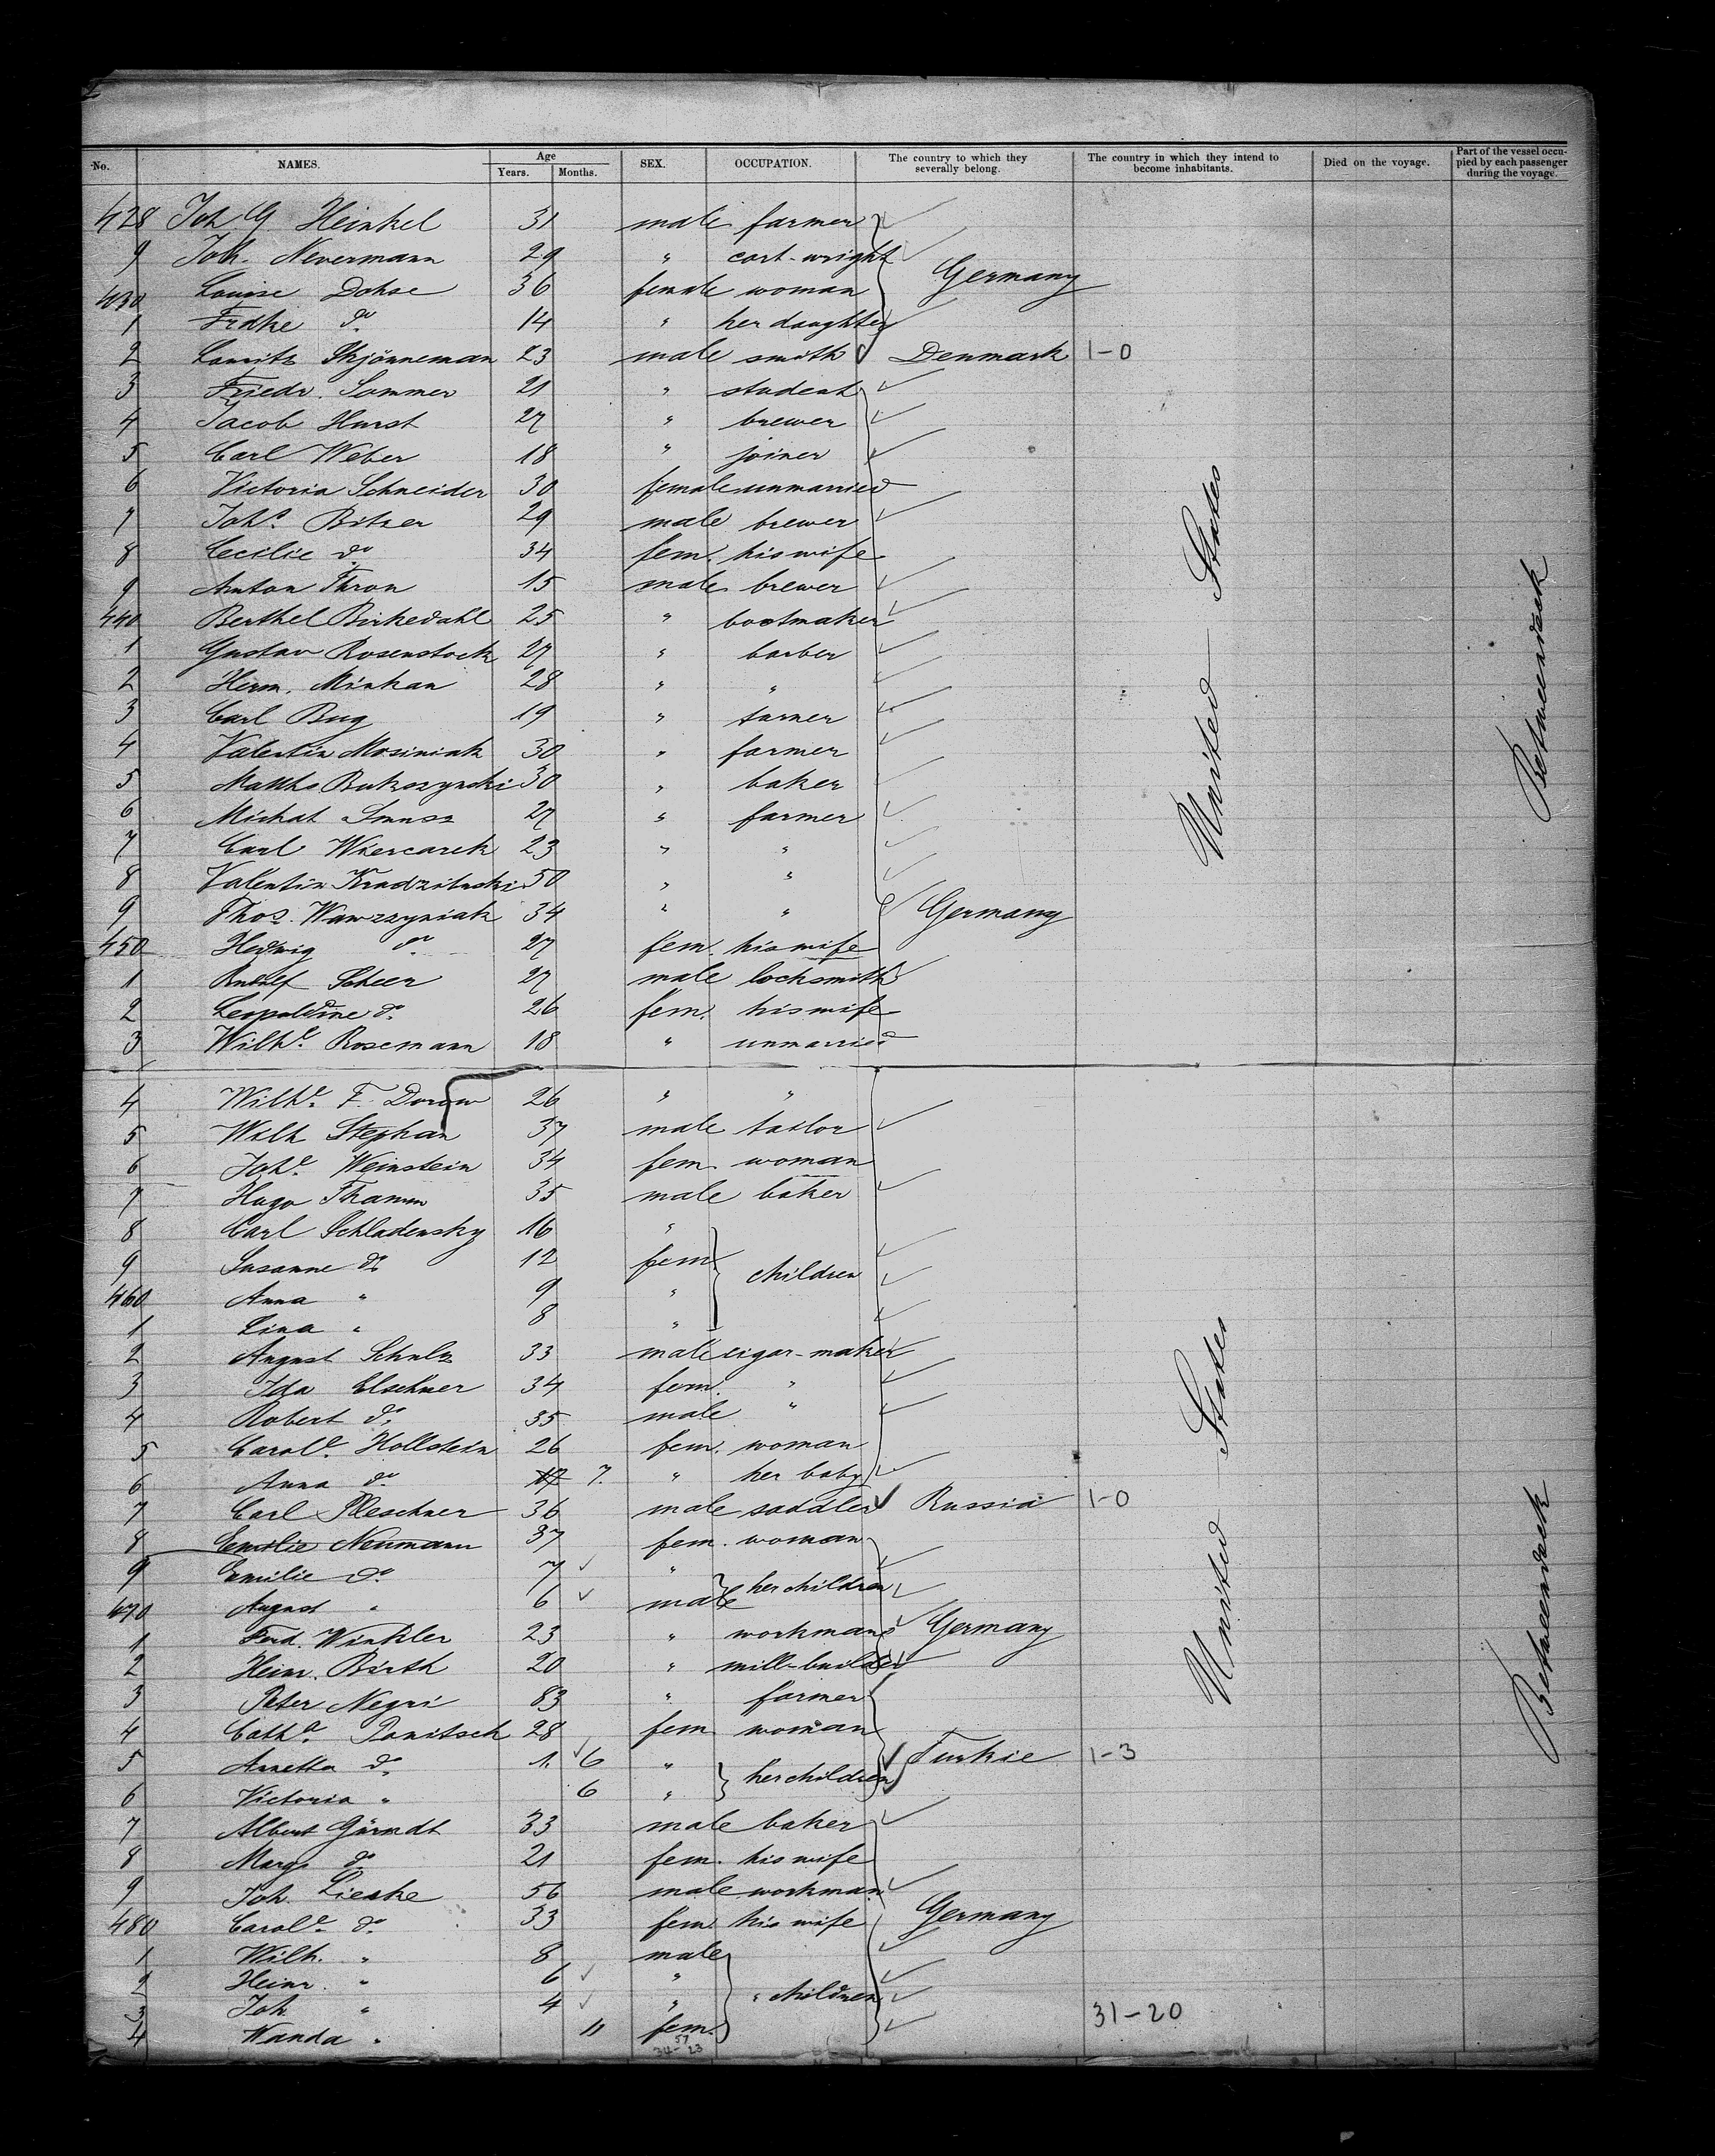 2
No. NAMES. Age Years. Months. SEX. OCCUPATION. The country to which they severally belong. The country in which they intend to become inhabitants. Died on the voyage. Part of the vessel occupied by each passenger during the voyage.
428 Joh G Heinkel 31 male farmer
9 Joh. Nevermann 29 " cart-wright Germany
430 Louise Dohse 36 female woman
1 Frdke do 14 " her daughter
2 Lauritz Skjönneman 23 male smith Denmark 1-0
3 Friedr. Sommer 21 " student
4 Jacob Hurst 27 " brewer
5 Carl Weber 18 " joiner
6 Victoria Schneider 30 female unmarried
7 Johs. Bitzer 29 male brewer
8 Cecilie do 34 fem. his wife
9 Anton Thron 15 male brewer
440 Berthel Birkedahl 25 " bootmaker
1 Gustav Rosenstock 27 " barber
2 Herm. Minkan 28 " "
3 Carl Bug 19 " turner
4 Valentin Mosiniak 30 " farmer
5 Matths Bukszynski 30 " baker
6 Michat 27 " farmer
7 Carl Wiercarek 23 " "
8 Valentin 50 " "
9 Thos. Wawrzyniak 34 " " Germany
450 Hedwig do 27 fem. his wife
1 Rudolf Scheer 27 male locksmith
2 Leopoldine do 26 fem. his wife
3 Wilhe. Rosemann 18 " unmarried
4 Wilhe. F. Dorow 26 " "
5 Wilh Stephan 37 male tailor
6 Johe. Weinstein 34 fem. woman
7 Hugo Thamm 35 male baker
8 Carl Schladensky 16 "
9 Susanne do 12 fem. children
460 Anna " 9 "
1 Lina " 8 "
2 August Schulz 33 male cigar-maker
3 Ida Elschner 34 fem. "
4 Robert do 35 male "
5 Carole. Hollstein 26 fem. woman
6 Anna do 7. " her baby
7 Carl Pleschner 36 male saddler Russia 1-0
8 Emilie Neumann 37 fem. woman
9 Emilie do 7 " her children
470 August " 6 male
1 Ferd. Winkler 23 " workman Germany
2 Heinr. Birth 20 " mill-builder
3 Peter Negri 83 " farmer
4 Catha. Panitsch 28 fem woman
5 Annetta do 1. 6 " her children Turkie 1-3
6 Victoria " 6 "
7 Albert Gärndt 33 male baker
8 Marg. do 21 fem. his wife
9 Joh. Lieske 56 male workman
480 Carole. do 33 fem. his wife Germany
1 Wilh. " 8 male
2 Heinr. " 6 "
3 Joh " 4 " " children
4 Wanda " 11 fem.
31-20
57
34-23
United States
Betweendeck
United States
Betweendeck